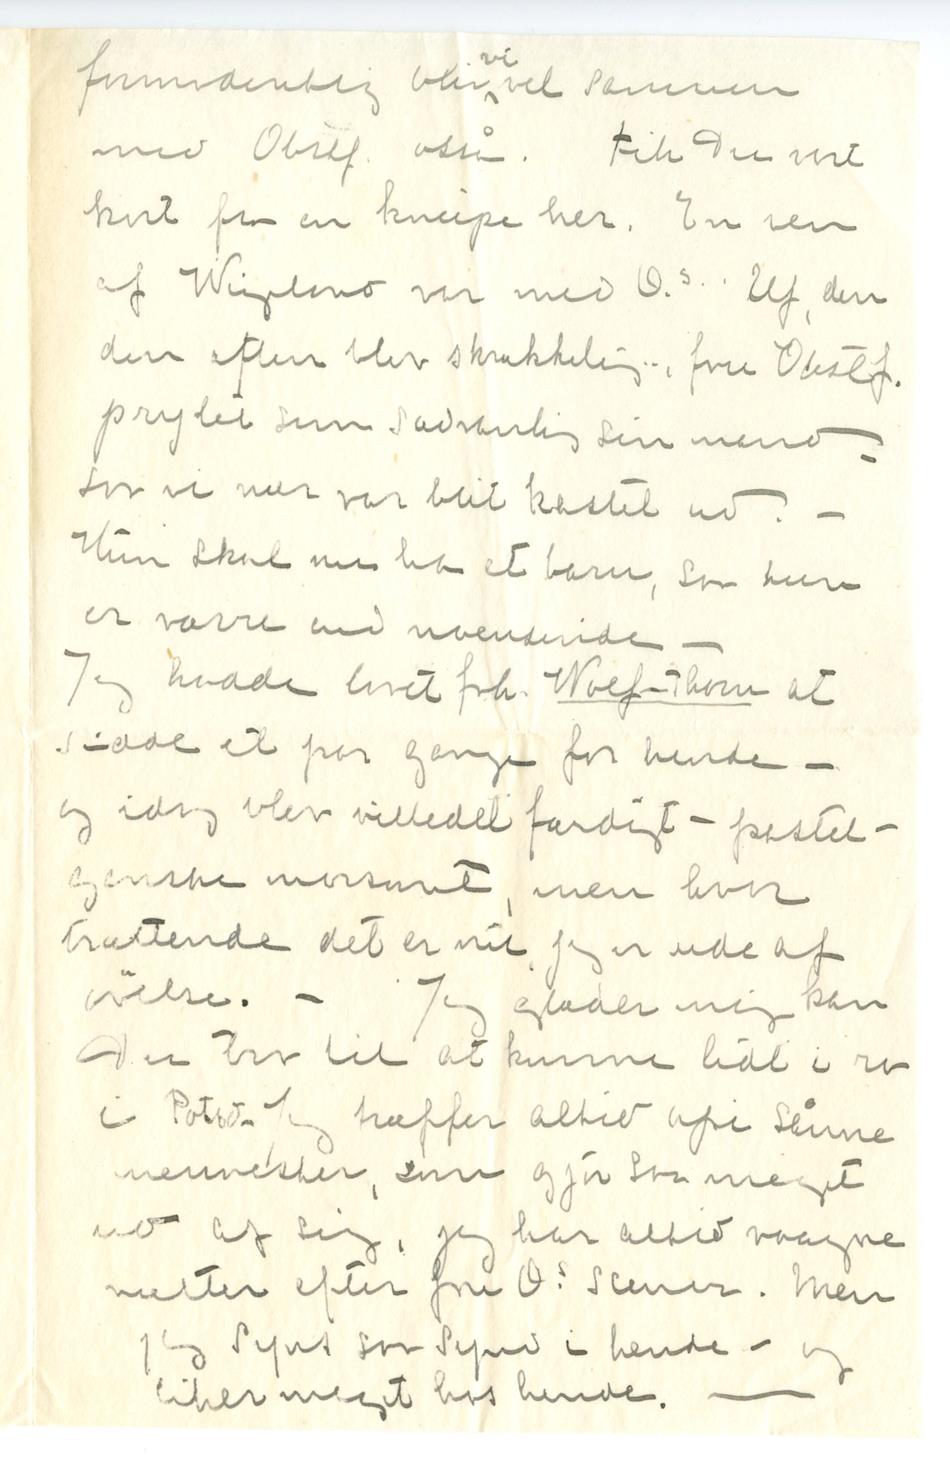 formodentlig blir vi vel sammen
med Obstf. også. Fik Du vort
kort fra en kneipe her. En ven
af Wigeland var med O.s. Uf, den
den aften blev skrækkelig, fru Obstf.
prylet som sædvanlig sin mand
saa vi nær var blit kastet ud. —
Hun skal nu ha et barn, saa hun
er værre end noensinde —
Jeg hadde lovet frk. Wolf-Thorn at
sidde et par gange for hende —
og idag blev billedet færdigt — pastel —
ganske morsomt, men hvor
trættende det er nu jeg er ude af
øvelse. — Jeg glæder mig kan
Du tro til at kunne lidt i ro
i Potsd. Jeg træffer altid sånne
mennesker, som gjør saa meget
ud af sig, jeg har altid vaagne
nætter efter fru O.s scener. Men
jeg synes saa synd i hende — og
liker meget hos hende. —